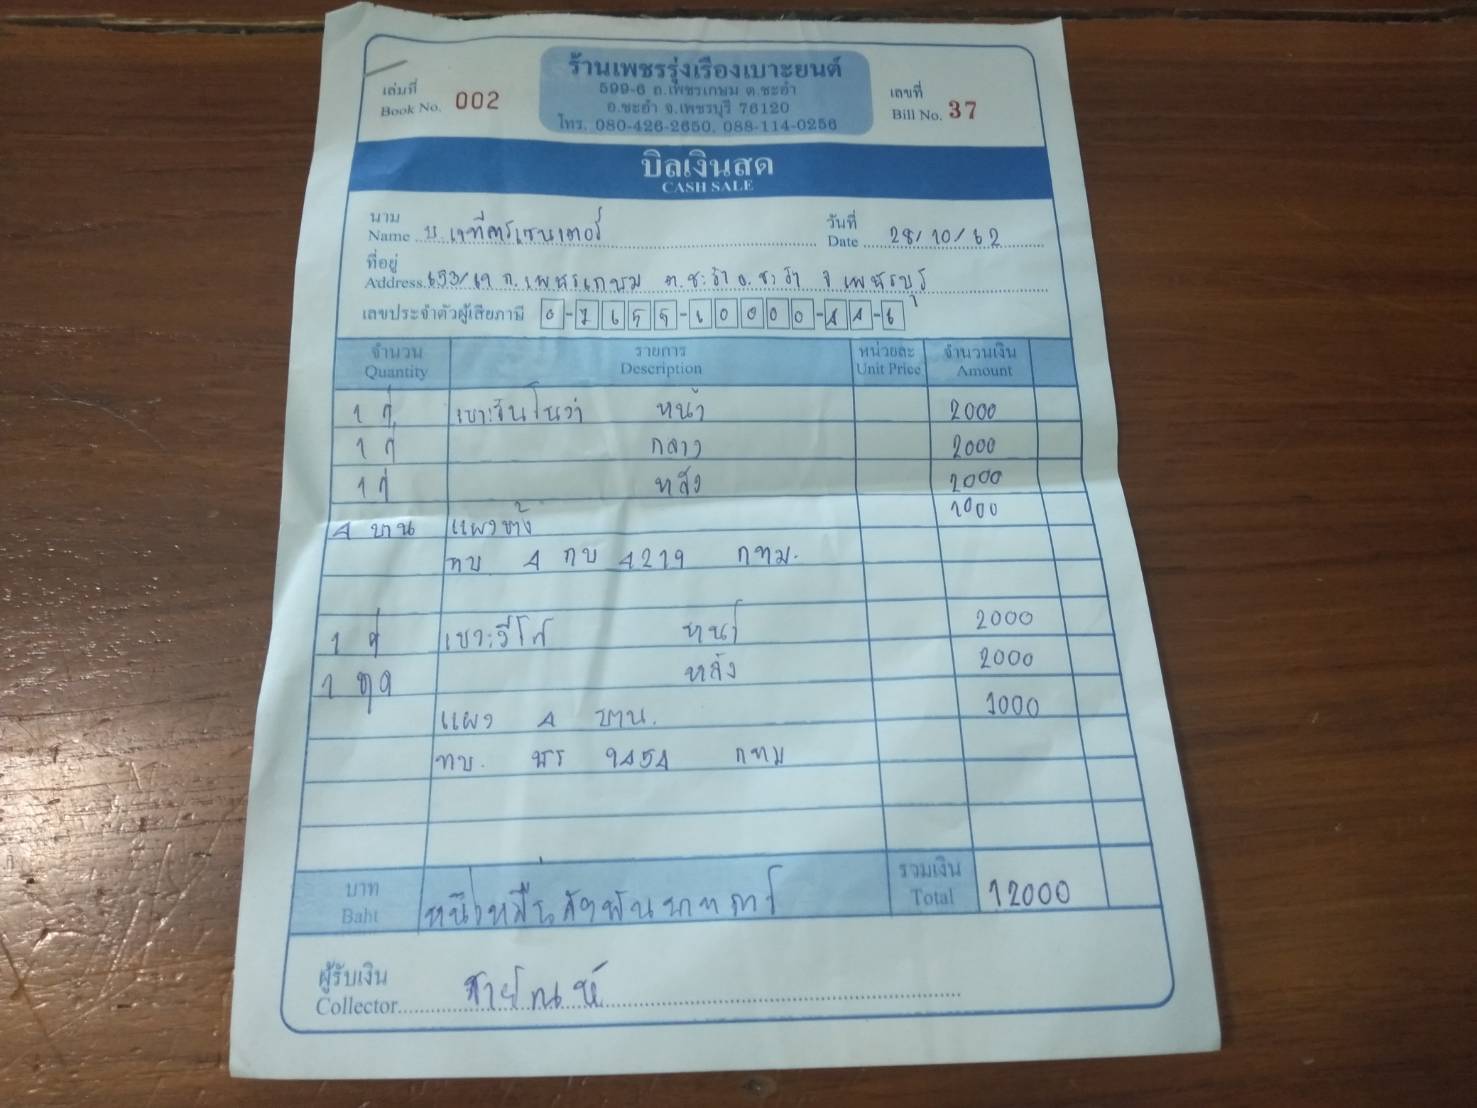 ร้านเพชรรุ่งเรืองเบาะยนต์
599-6 ถ.เพชรเกษม ต.ชะอำ
อ.ชะอำ จ.เพชรบุรี 76120
โทร. 080-426-2650, 088-114-0256
เล่มที่
Book No. 002
เลขที่
Bill No. 37
บิลเงินสด
CASH SALE
นาม
Name บ. เจทีคาร์เซนเตอร์
วันที่
Date 28/10/62
ที่อยู่
Address ถ.เพชรเกษม ต.ชะอำ อ.ชะอำ จ เพชรบุรี
เลขประจำตัวผู้เสียภาษี
จำนวน รายการ หน่วยละ จำนวนเงิน
Quantity Description Unit Price Amount
1 คู่ เบาะอินโนวา หน้า 2000
1 คู่ กลาง 2000
1 คู่ หลัง 2000
4 บาน แผงข้าง 1000
ทบ 4 กบ 4219 กทม.
1 คู่ เบาะวีโก้ หน้า 2000
1 ชุด หลัง 2000
แผง 4 บาน. 1000
ทบ. 9454 กทม
บาท
Baht หนึ่งหมื่นสองพันบาทถ้วน
รวมเงิน
Total 12000
ผู้รับเงิน
Collector